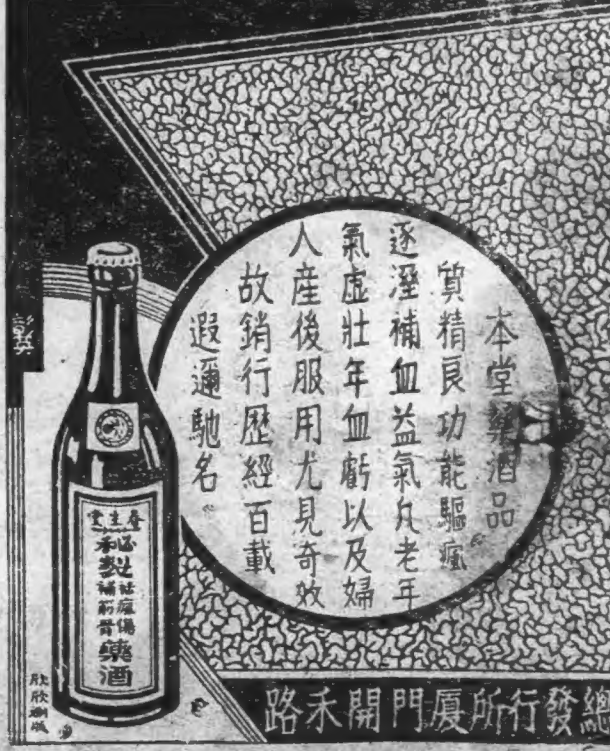 本堂藥酒品
質精良功能驅瘋
逐溼補血益氣凡老年
氣虛壯年血虧以及婦
人產後服用尤見奇效
故銷行歷經百載
遐邇馳名。
春生堂
祛瘋傷
補筋骨
藥酒
總發行所厦門開禾路